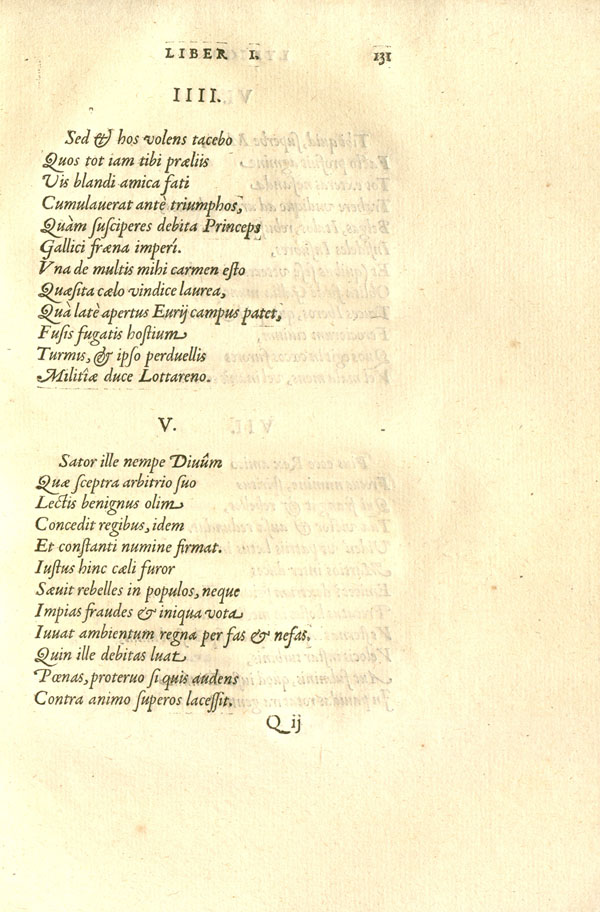 LIBER I. 131
IIII.
Sed & hos volens tacebo
Quos tot iam tibi præliis
Vis blandi amica fati
Cumulauerat antè triumphos,
Quàm ſuſciperes debita Princeps
Gallici fræna imperî.
Vna de multis mihi carmen eſto
Quæſita cælo vindice laurea,
Quà latè apertus Eurij campus patet,
Fuſis fugatis hoſtium
Turmis, & ipſo perduellis
Militîæ duce Lottareno.
V.
Sator ille nempe Diuûm
Quæ ſceptra arbitrio ſuo
Lectis benignus olim
Concedit regibus, idem
Et conſtanti numine firmat.
Iuſtus hinc cæli furor
Sæuit rebelles in populos, neque
Impias fraudes & iniqua vota
Iuuat ambientum regna per fas & nefas.
Quin ille debitas luat
Pœnas, proteruo ſi quis audens
Contra animo ſuperos laceſſit.
Q ij